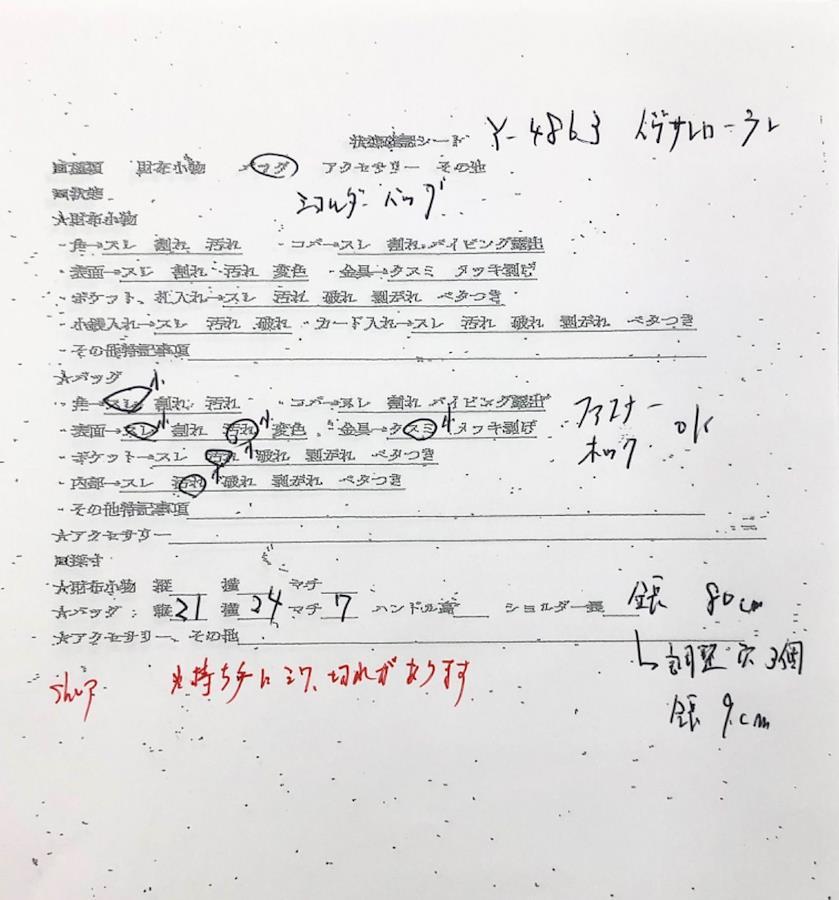 状態確認シート Y-4863 イヴサンローラン
財布小物 バッグ アクセサリー その他
ショルダーバッグ
★財布小物
・角→スレ 割れ 汚れ ・コバ→スレ 割れ パイピング露出
・表面→スレ 割れ 汚れ 変色 ・金具→クスミ メッキ剥げ
・ポケット、札入れ→スレ 汚れ 破れ 剥がれ ベタつき
・小銭入れ→スレ 汚れ 破れ ・カード入れ→スレ 汚れ 破れ 剥がれ ベタつき
・その他特記事項
★バッグ 小
・角→スレ 割れ 汚れ ・コバ→スレ 割れ パイピング露出
・表面→スレ 小 割れ 汚れ 小 変色 ・金具→クスミ 小 メッキ剥げ
ファスナー
ホック OK
・ポケット→スレ 汚れ 小 破れ 剥がれ ベタつき
・内部→スレ 汚れ 小 破れ 剥がれ ベタつき
・その他特記事項
★アクセサリー
採寸
★財布小物 縦 横 マチ
★バッグ 縦 21 横 24 マチ 7 ハンドル高 ショルダー長 全長 80cm
★アクセサリー、その他
調整穴 3個
全長 9cm
shop ※持ち手にシワ、切れがあります